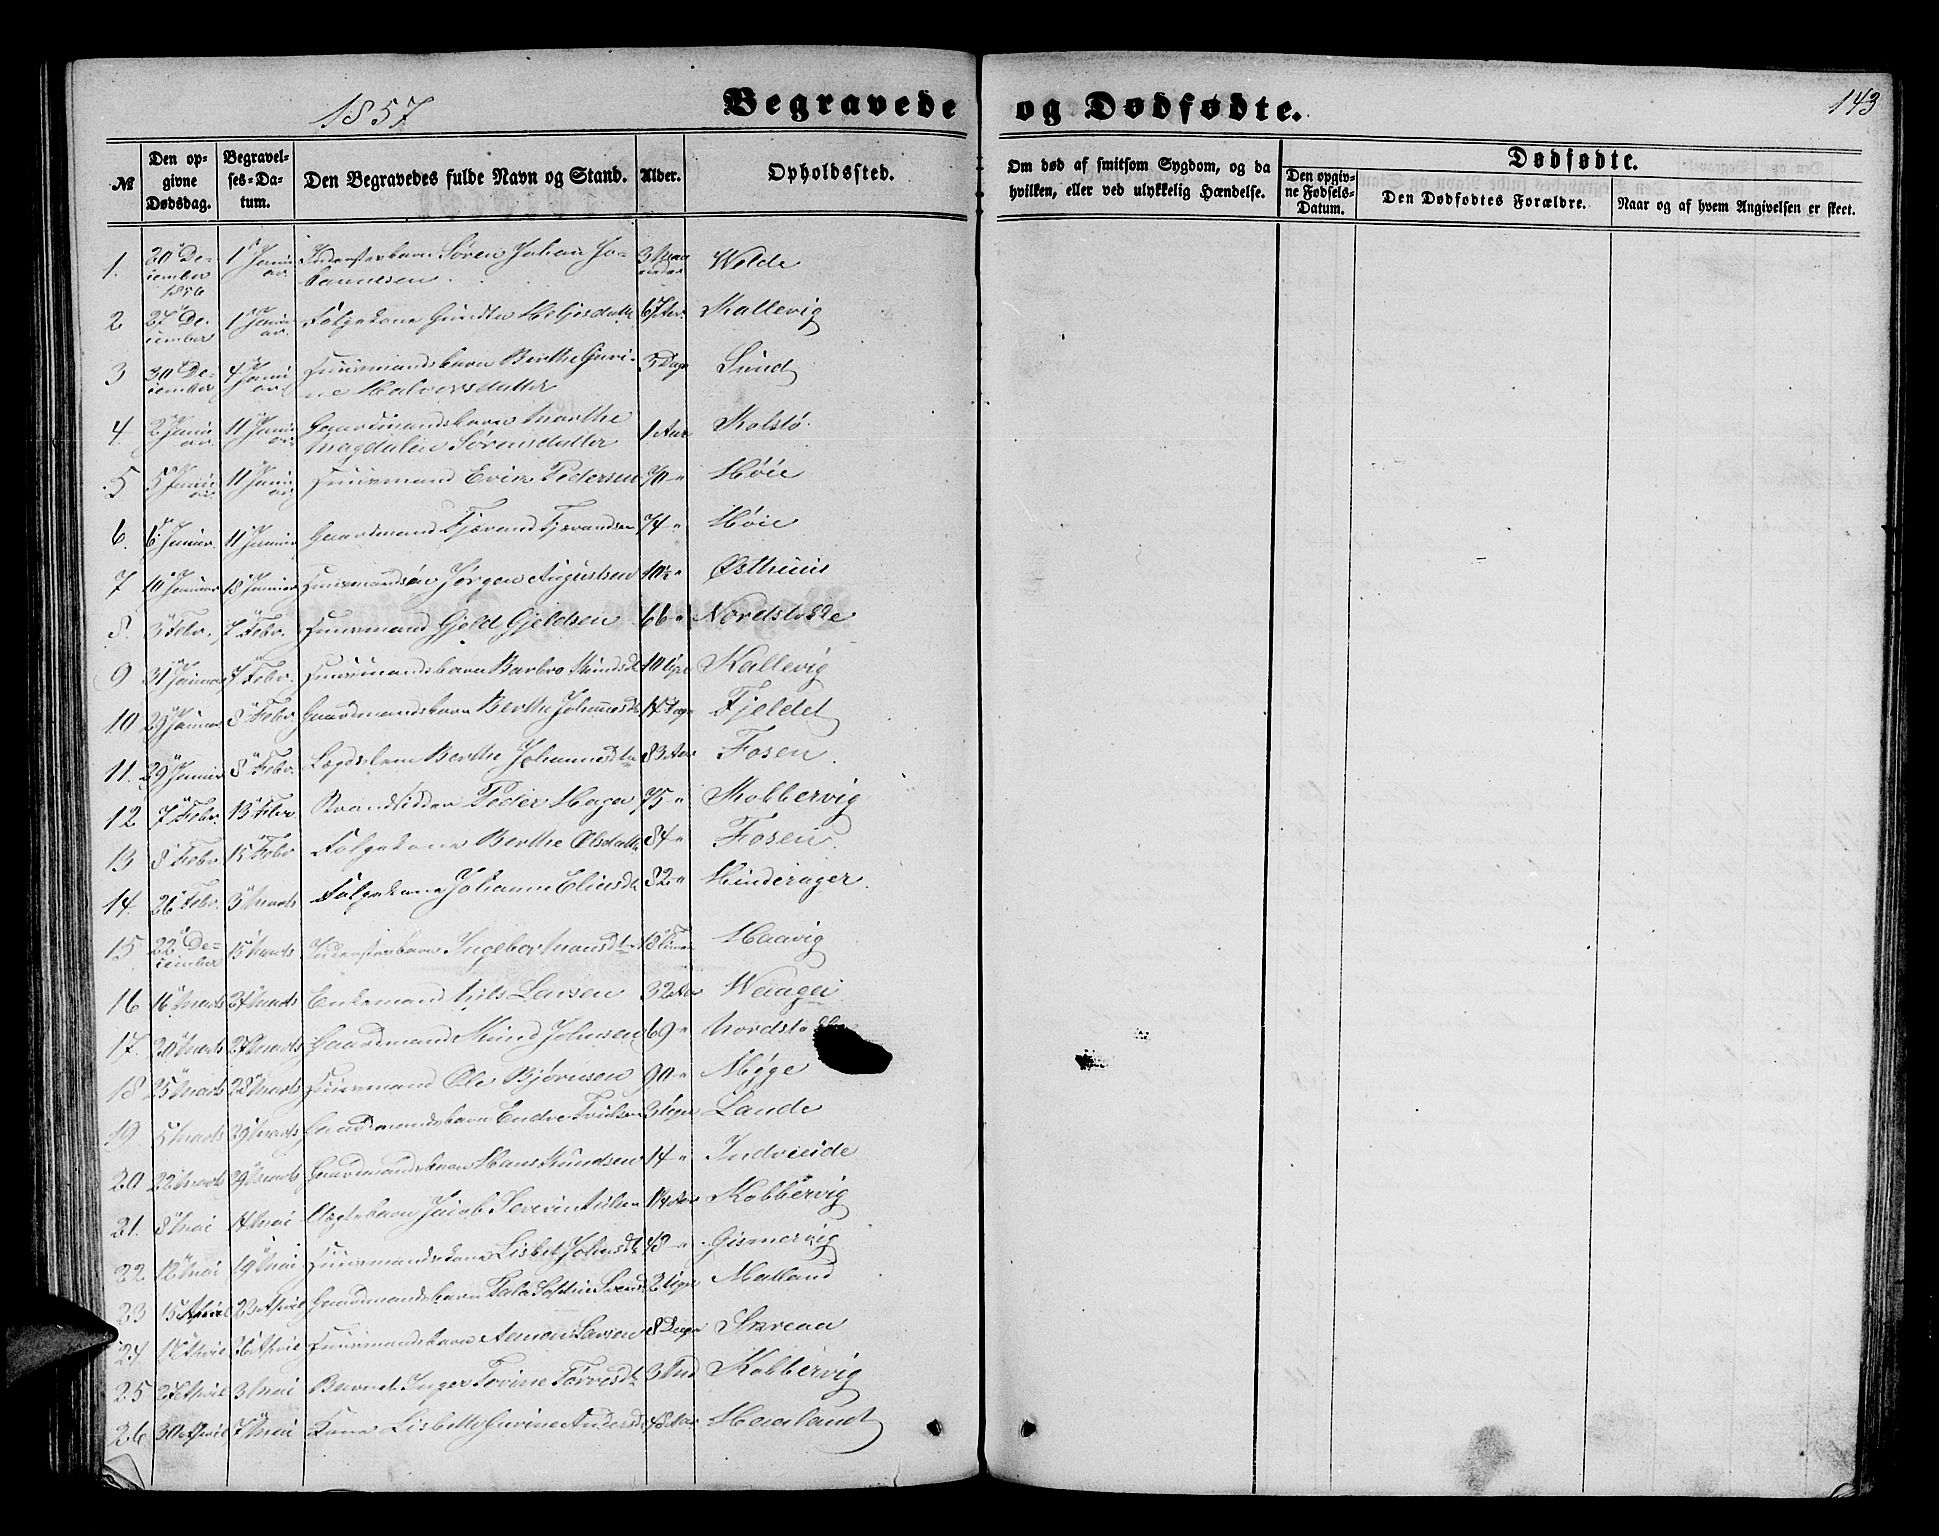 1857
Begravede og Dødfødte.
143
№
Den opgivne Dødsdag.
Begravelses-Datum.
Den Begravedes fulde Navn og Stand.
Alder.
Opholdssted.
Om død af smitsom Sygdom, og da hvilken, eller ved ulykkelig Hændelse.
Dødfødte.
Den opgivne Fødsels-Datum.
Den Dødfødtes Forældre.
Naar og af hvem Angivelsen er skeet.
1. December 1856 1 Januar Inderstbarn Søren Johan Johannesen 3 Welde
2 27 December 1 Januar Folgekone 67 Aar Kallevig
3 30 December 4 Januar Huusmandsbarn Berthe Gurine Halvorsdatter 3 Dage Sund
4. 2 Januar 11 Januar Gaardmandsbarn Marthe Magdalin Sørensdatter 1 Aar Kolstø
5 5 Januar 11 Januar Huusmand Pedersen 70 " Høie
6. 6 Januar 11 Januar Gaardmand Tjærand Tjærandsen 74 " Høie
7 10 Januar 18 Januar Huusmandsøn Jørgen Augustsen 10½ " Østhuus
8. 3 Febr. 7 Febr. Huusmand Gjeld Gjeldsen 66 " Nordstokke
9 31 Januar 7 Febr. Huusmandsbarn Barbro Knudsd 10 Uger Kallevig
10 29 Januar 8 Febr. Gaardmandsbarn Berthe Johannesd 14 Dage Fjeldet
11. 29 Januar 8 Febr. Lægdslem Berthe Johannesdtr 83 Aar Fosen.
12 7 Febr. 13 Febr. Brandlidder Peder Haga 75 " Kobbervig
13 8 Febr. 15 Febr Folgekone Berthe Olsdatter 84 " Fosen.
14. 26 Febr. 3 Marts Folgekone Johanne Eliasd 82 " Hinderager.
15 22 December 15 Marts Inderstbarn Ingebor Monsdtr 18 Timer Haavig
16 16 Marts 27 Marts Enkemand Nils Larsen 32 Aar Waage
17. 20 Marts 27 Marts Gaardmand Knud Johnsen 69 " Nordstokke
18 25 Marts 28 Marts Huusmand Ole Bjørnsen 90 " Myge
19. 5 Marts 29 Marts Gaardmandsbarn Endre 3 Uger Lande
20 22 Marts 29 Marts Gaardmandsbarn Hans Knudsen 14 " Indreeide
21. 8 Mai 14 Mai Jacob Severin Nilsen 14 Aar Kobbervig
22 12 Mai 19 Mai Huusmandskone Lisbet Johnsd 48 " Gismervig
23 15 April 23 April Gaardmandsbarn 2 Uger Malland
24. 18 April 26 April Huusmandsbarn Larsen 8 Dage Skreaa
25 27 April 3 Mai Barnet Inger Torine Torresd 3 Kobbervig
26 30 April 7 Mai Kone Lisbeth Gurine Andersd 48 Aar Haaland